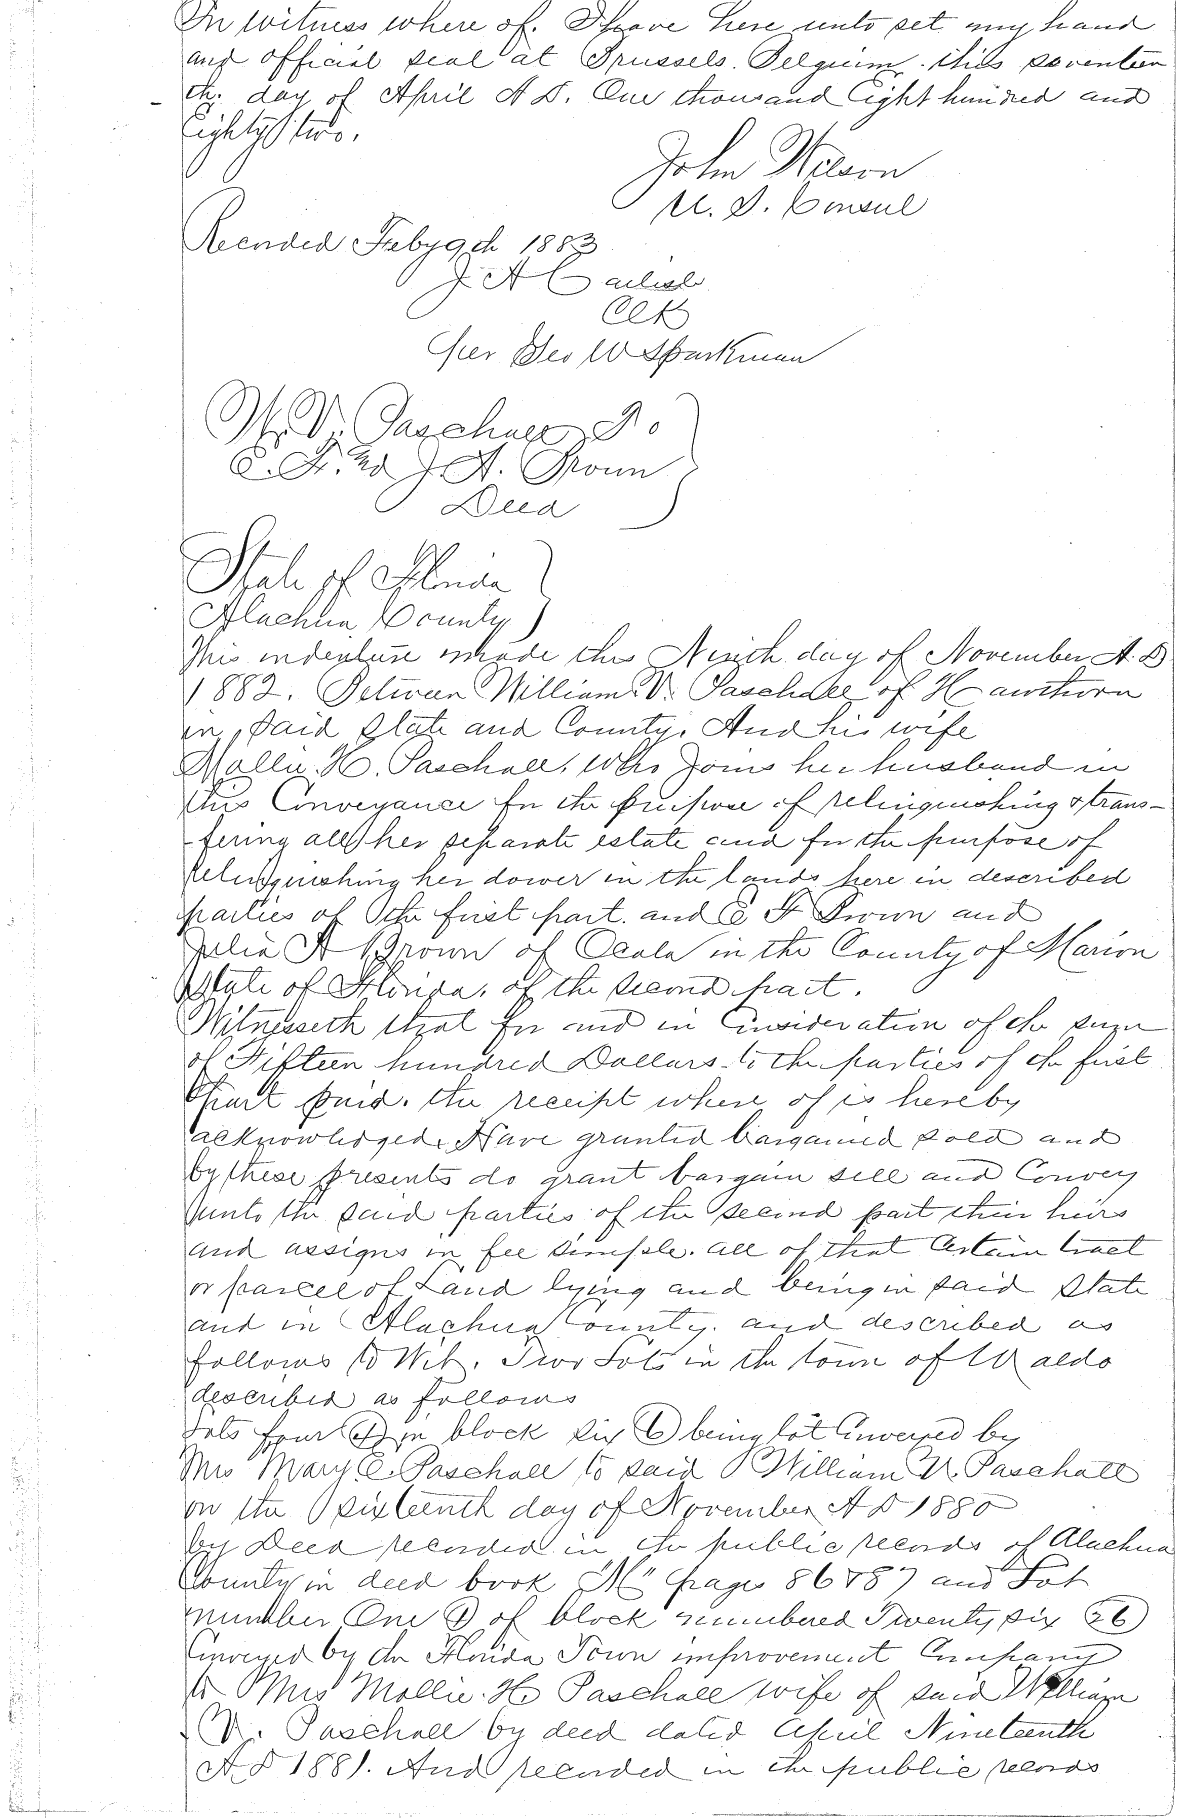 In witness where of. I have here unto set my hand
and official seal at Brussels. Belgium. this seventeen
th. day of April A D. One thousand Eight hundred and
Eighty two.
John Wilson
U. S. Consul
Recorded Feby 9th 1883
J. A Carlisle
Clk
per Geo W Sparkman
W. V. Paschall To
E. F. and J A. Brown
Deed
State of Florida
Alachua County
This indenture made this Ninth day of November A. D
1882. Between William V. Paschall of Hawthorn
in said State and County. And his wife
Mollie. H. Paschall. who joins her husband in
this Conveyance for the purpose of relinquishing & trans-
fering all her separate estate and for the purpose of
relinquishing her dower in the lands here in described
parties of the first part. and E F Brown and
Julia A Brown of Ocala in the County of Marion
State of Florida. of the second part.
Witnesseth that for and in Consideration of the sum
of Fifteen hundred Dollars to the parties of the first
part paid. the receipt where of is hereby
acknowledged. Have granted bargained sold and
by these presents do grant bargain sell and Convey
unto the said parties of the second part their heirs
and assigns in fee simple. all of that Certain tract
or parcel of Land lying and being in said State
and in Alachua County. and described as
follows to Wit. Two Lots in the town of Waldo
described as follows
Lots four (4) in block six (6) being lot Conveyed by
Mrs Mary E. Paschall to said William V. Paschall
on the sixteenth day of November A D 1880
by Deed recorded in the public records of Alachua
County in deed book "M" pages 86 & 87 and Lot
number One (1) of block numbered Twenty six (26)
Conveyed by the Florida Town improvement Company
to Mrs Mollie. H. Paschall wife of said William
V. Paschall by deed dated April Nineteenth
A D 1881. And recorded in the public records